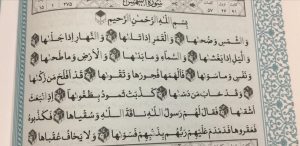 سورة الشمس
بِسْمِ اللَّهِ الرَّحْمَٰنِ الرَّحِيمِ
وَالشَّمْسِ وَضُحَىٰهَا ۝ وَالْقَمَرِ إِذَا تَلَىٰهَا ۝ وَالنَّهَارِ إِذَا جَلَّىٰهَا ۝
وَاللَّيْلِ إِذَا يَغْشَىٰهَا ۝ وَالسَّمَاءِ وَمَا بَنَىٰهَا ۝ وَالْأَرْضِ وَمَا طَحَىٰهَا ۝
وَنَفْسٍ وَمَا سَوَّىٰهَا ۝ فَأَلْهَمَهَا فُجُورَهَا وَتَقْوَىٰهَا ۝ قَدْ أَفْلَحَ مَنْ زَكَّىٰهَا
۝ وَقَدْ خَابَ مَنْ دَسَّىٰهَا ۝ كَذَّبَتْ ثَمُودُ بِطَغْوَىٰهَا ۝ إِذِ انْبَعَثَ
أَشْقَىٰهَا ۝ فَقَالَ لَهُمْ رَسُولُ اللَّهِ نَاقَةَ اللَّهِ وَسُقْيَاهَا ۝ فَكَذَّبُوهُ
فَعَقَرُوهَا فَدَمْدَمَ عَلَيْهِمْ رَبُّهُمْ بِذَنْبِهِمْ فَسَوَّىٰهَا ۝ وَلَا يَخَافُ عُقْبَاهَا